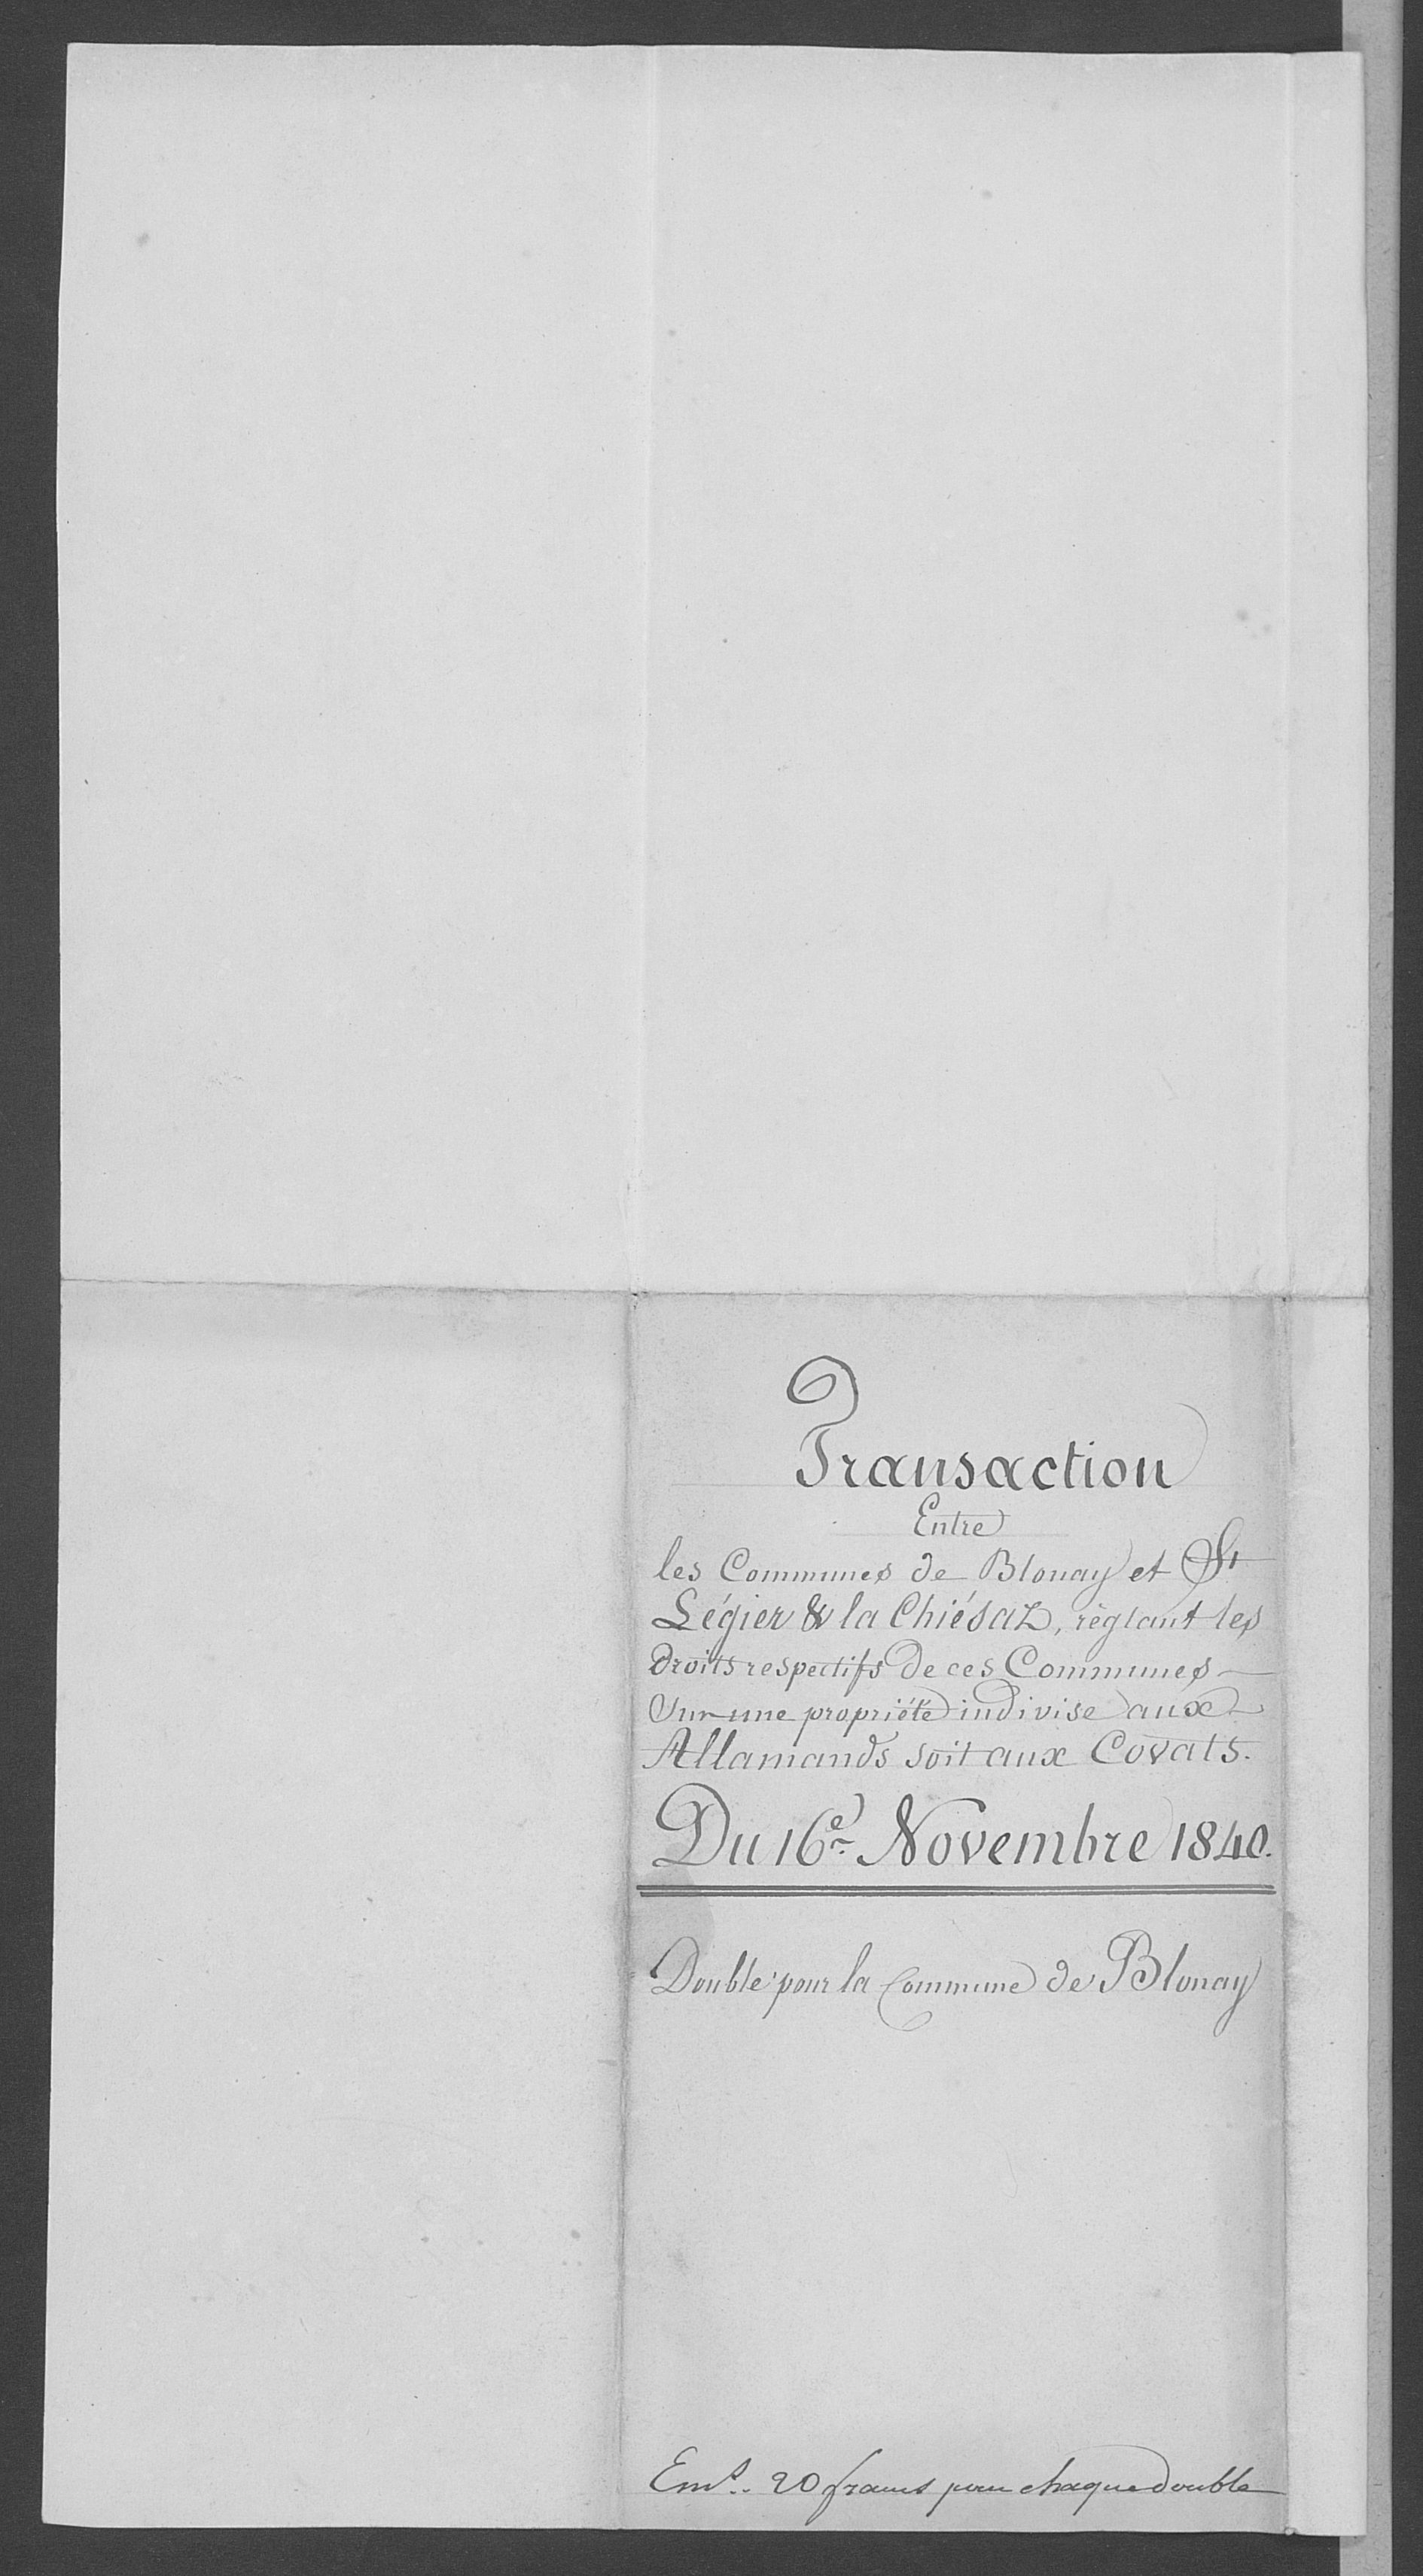 Transaction
Entre
les Communes de Blonay et St
Légier & la Chiésaz, règlant les
droits respectifs de ces Communes
Sur une propriété indivise aux
Allamands soit aux Covats.
Du 16e Novembre 1840.
Double pour la Commune de Blonay
Emt. 20 francs pour chaque double